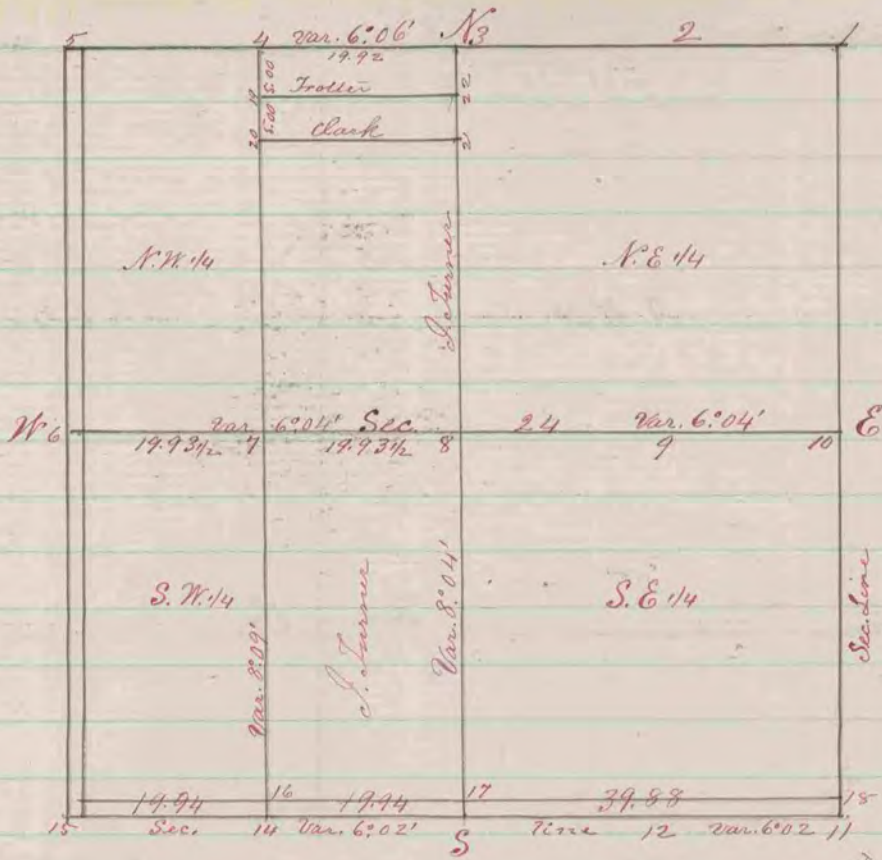 5 4 Var. 6°06' N3 2 1
19.92
5.00 Trotter
19 22
5.00 Clark
20 2
N.W. 1/4 J. Turner N.E 1/4
W 6 Var. 6°04' Sec. 24 Var. 6°04' E
19.93 1/2 7 19.93 1/2 8 9 10
S.W. 1/4 S.E 1/4
Var. 8°09' J. Turner Var. 8°04' Sec. Line
19.94 16 19.94 17 39.88 18
15 Sec. 14 Var. 6°02' S Line 12 Var. 6°02 11